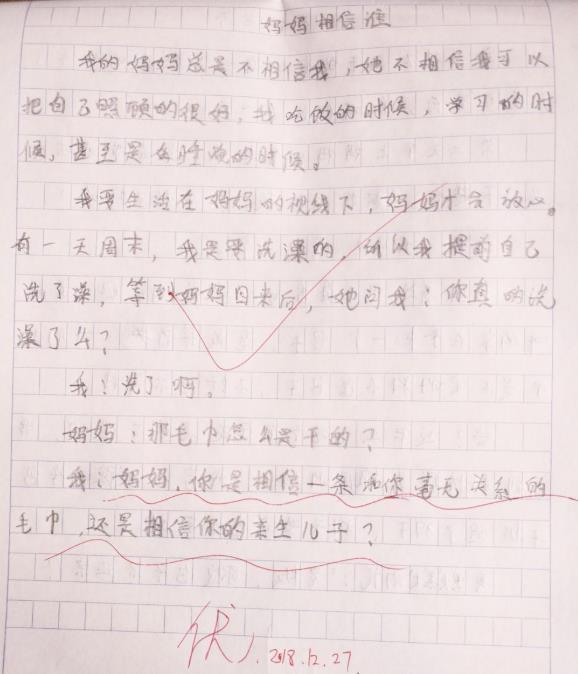 妈妈相信谁
我的妈妈总是不相信我，她不相信我可以
把自己照顾的很好，我吃饭的时候，学习的时
候，甚至是在睡觉的时候。
我要生活在妈妈的视线下，妈妈才会放心。
有一天周末，我是要洗澡的，所以我提前自己
洗了澡，等到妈妈回来后，她问我：你真的洗
澡了么？
我：洗了啊。
妈妈：那毛巾怎么是干的？
我：妈妈，你是相信一条和你毫无关系的
毛巾，还是相信你的亲生儿子？
优 2018.12.27